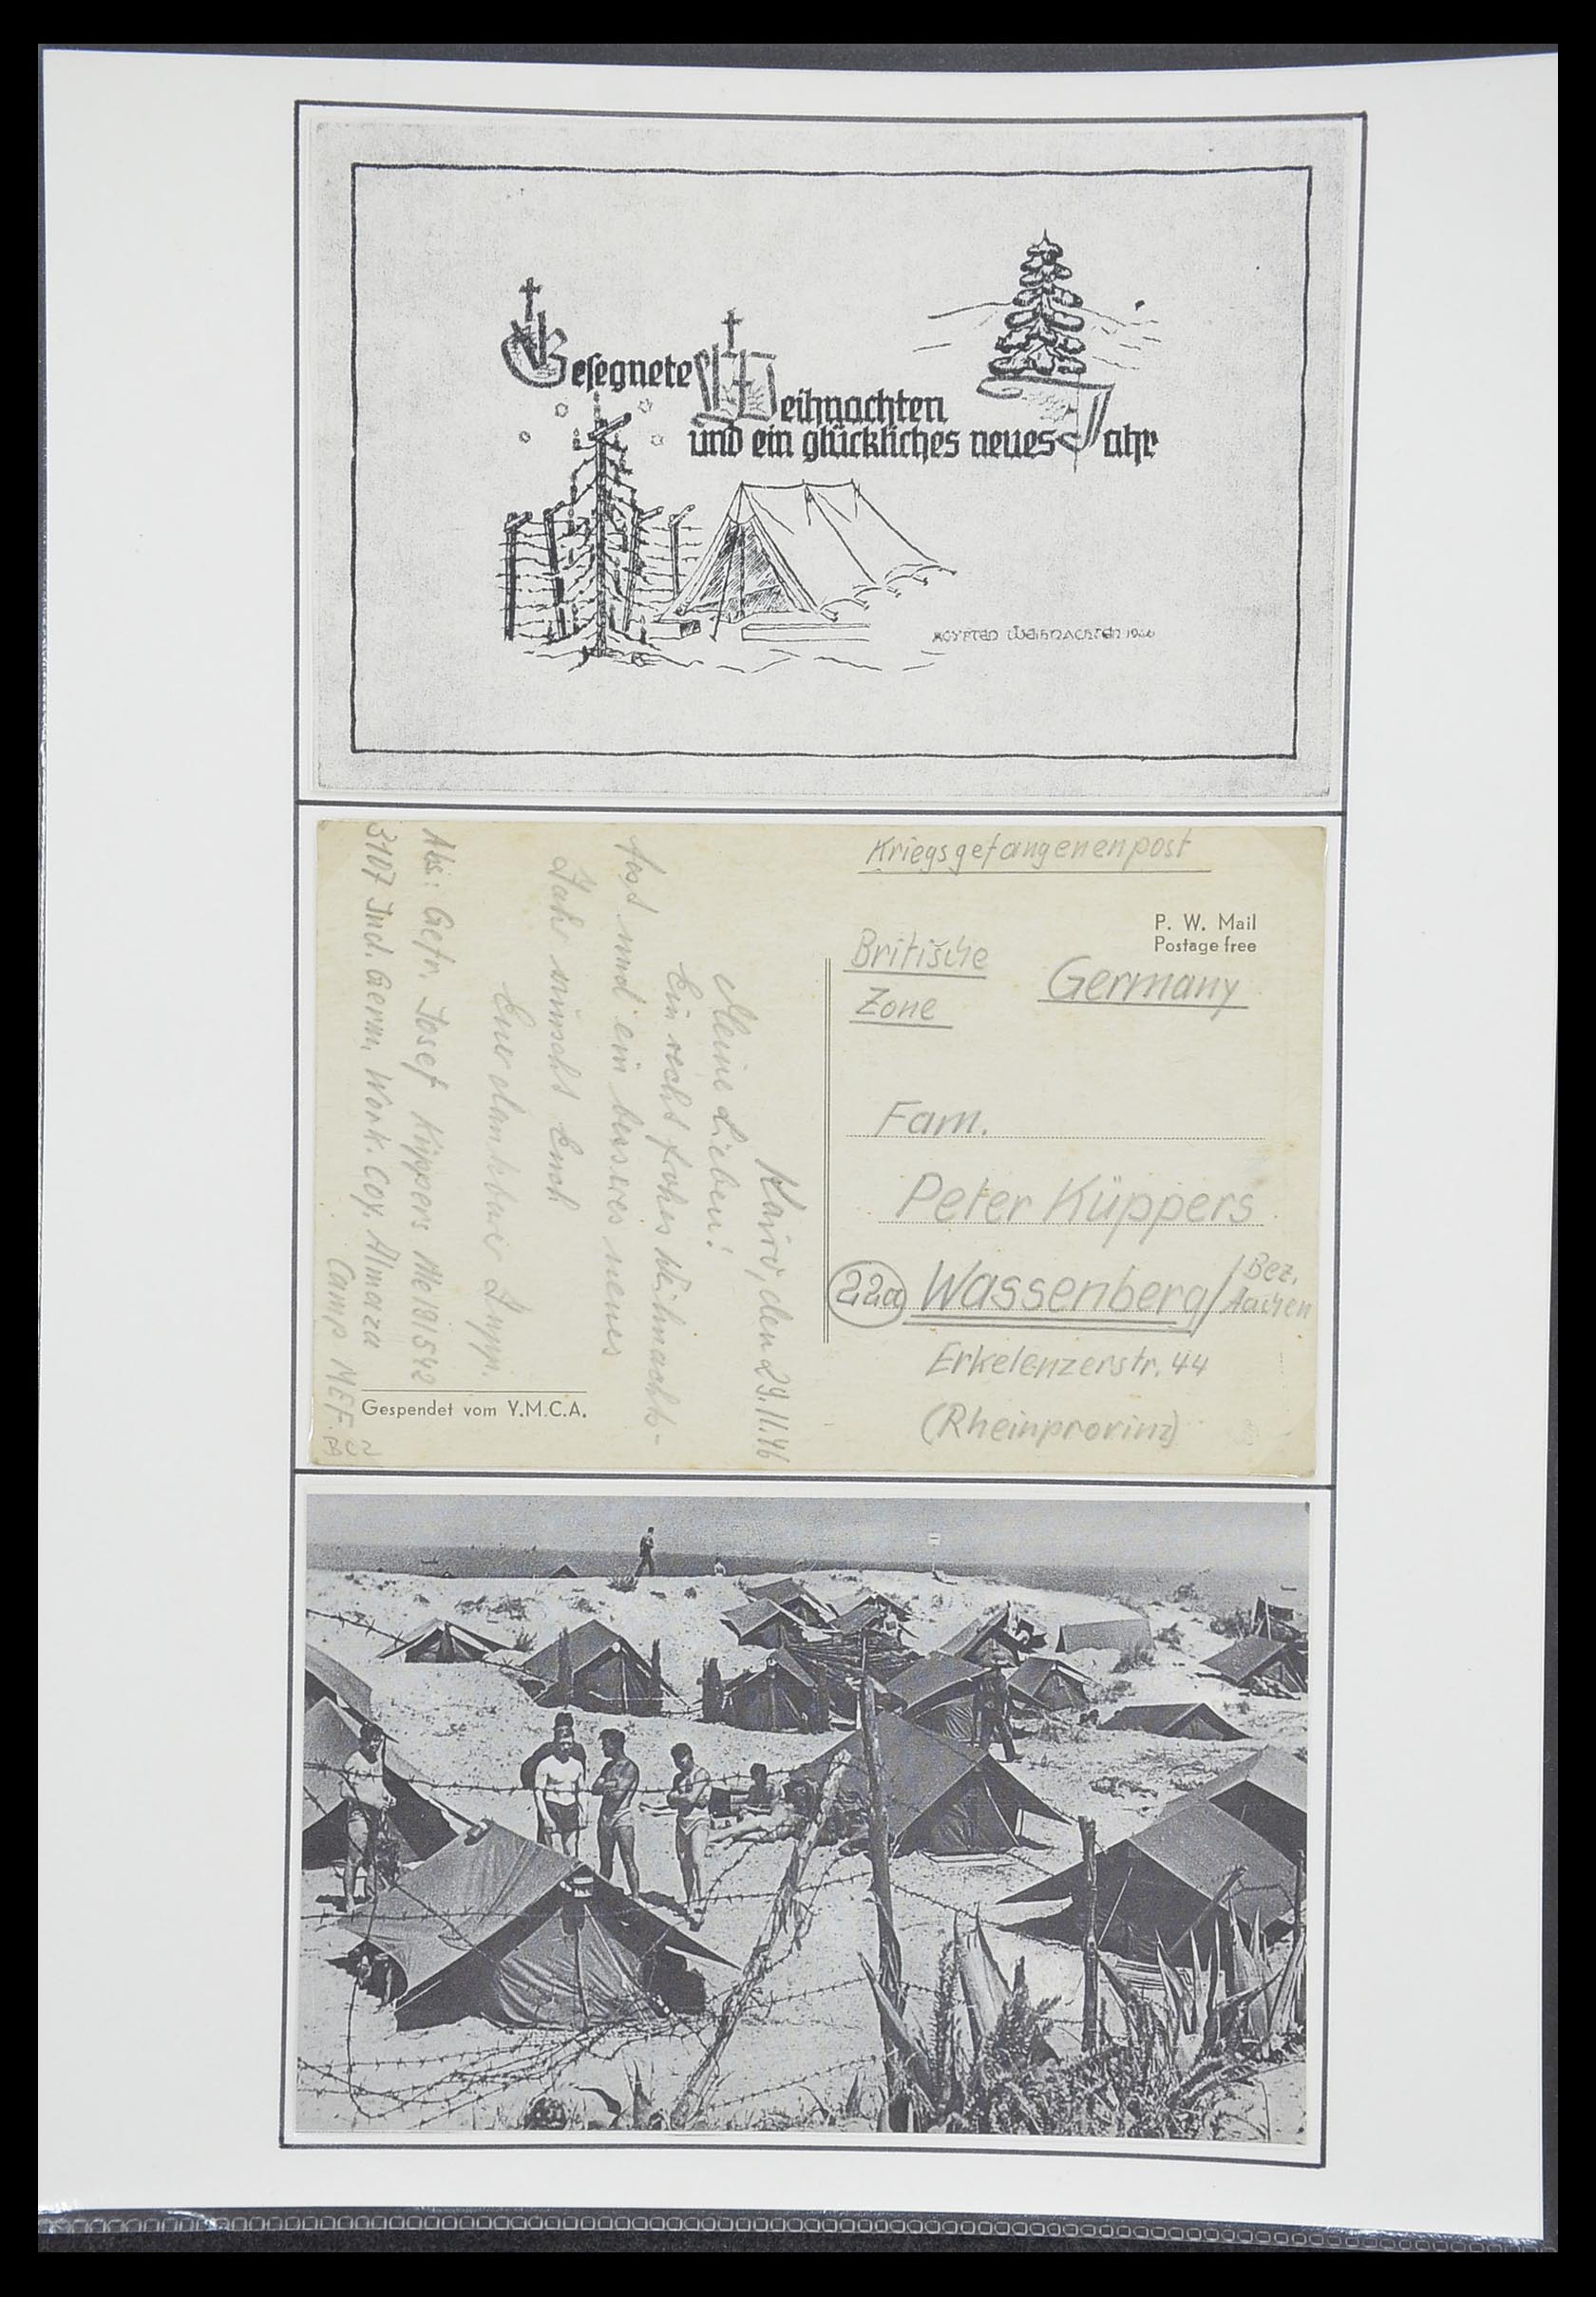 Gesegnete Weihnachten
und ein glückliches neues Jahr
ÄGYPTEN WEIHNACHTEN 1946
Kriegsgefangenenpost
P. W. Mail
Postage free
Britische
Zone
Germany
Fam.
Peter Küppers
22a Wassenberg / Bez.
Aachen
Erkelenzerstr. 44
(Rheinprovinz)
Kairo, den 29.11.46
Meine Lieben!
Ein recht frohes Weihnachts-
fest und ein besseres neues
Jahr wünscht Euch
Euer dankbarer Jupp.
Abs.: Gefr. Josef Küppers Me 191542
3107 Ind. Germ. Work. Coy. Almaza
Camp MEF.
Gespendet vom Y.M.C.A.